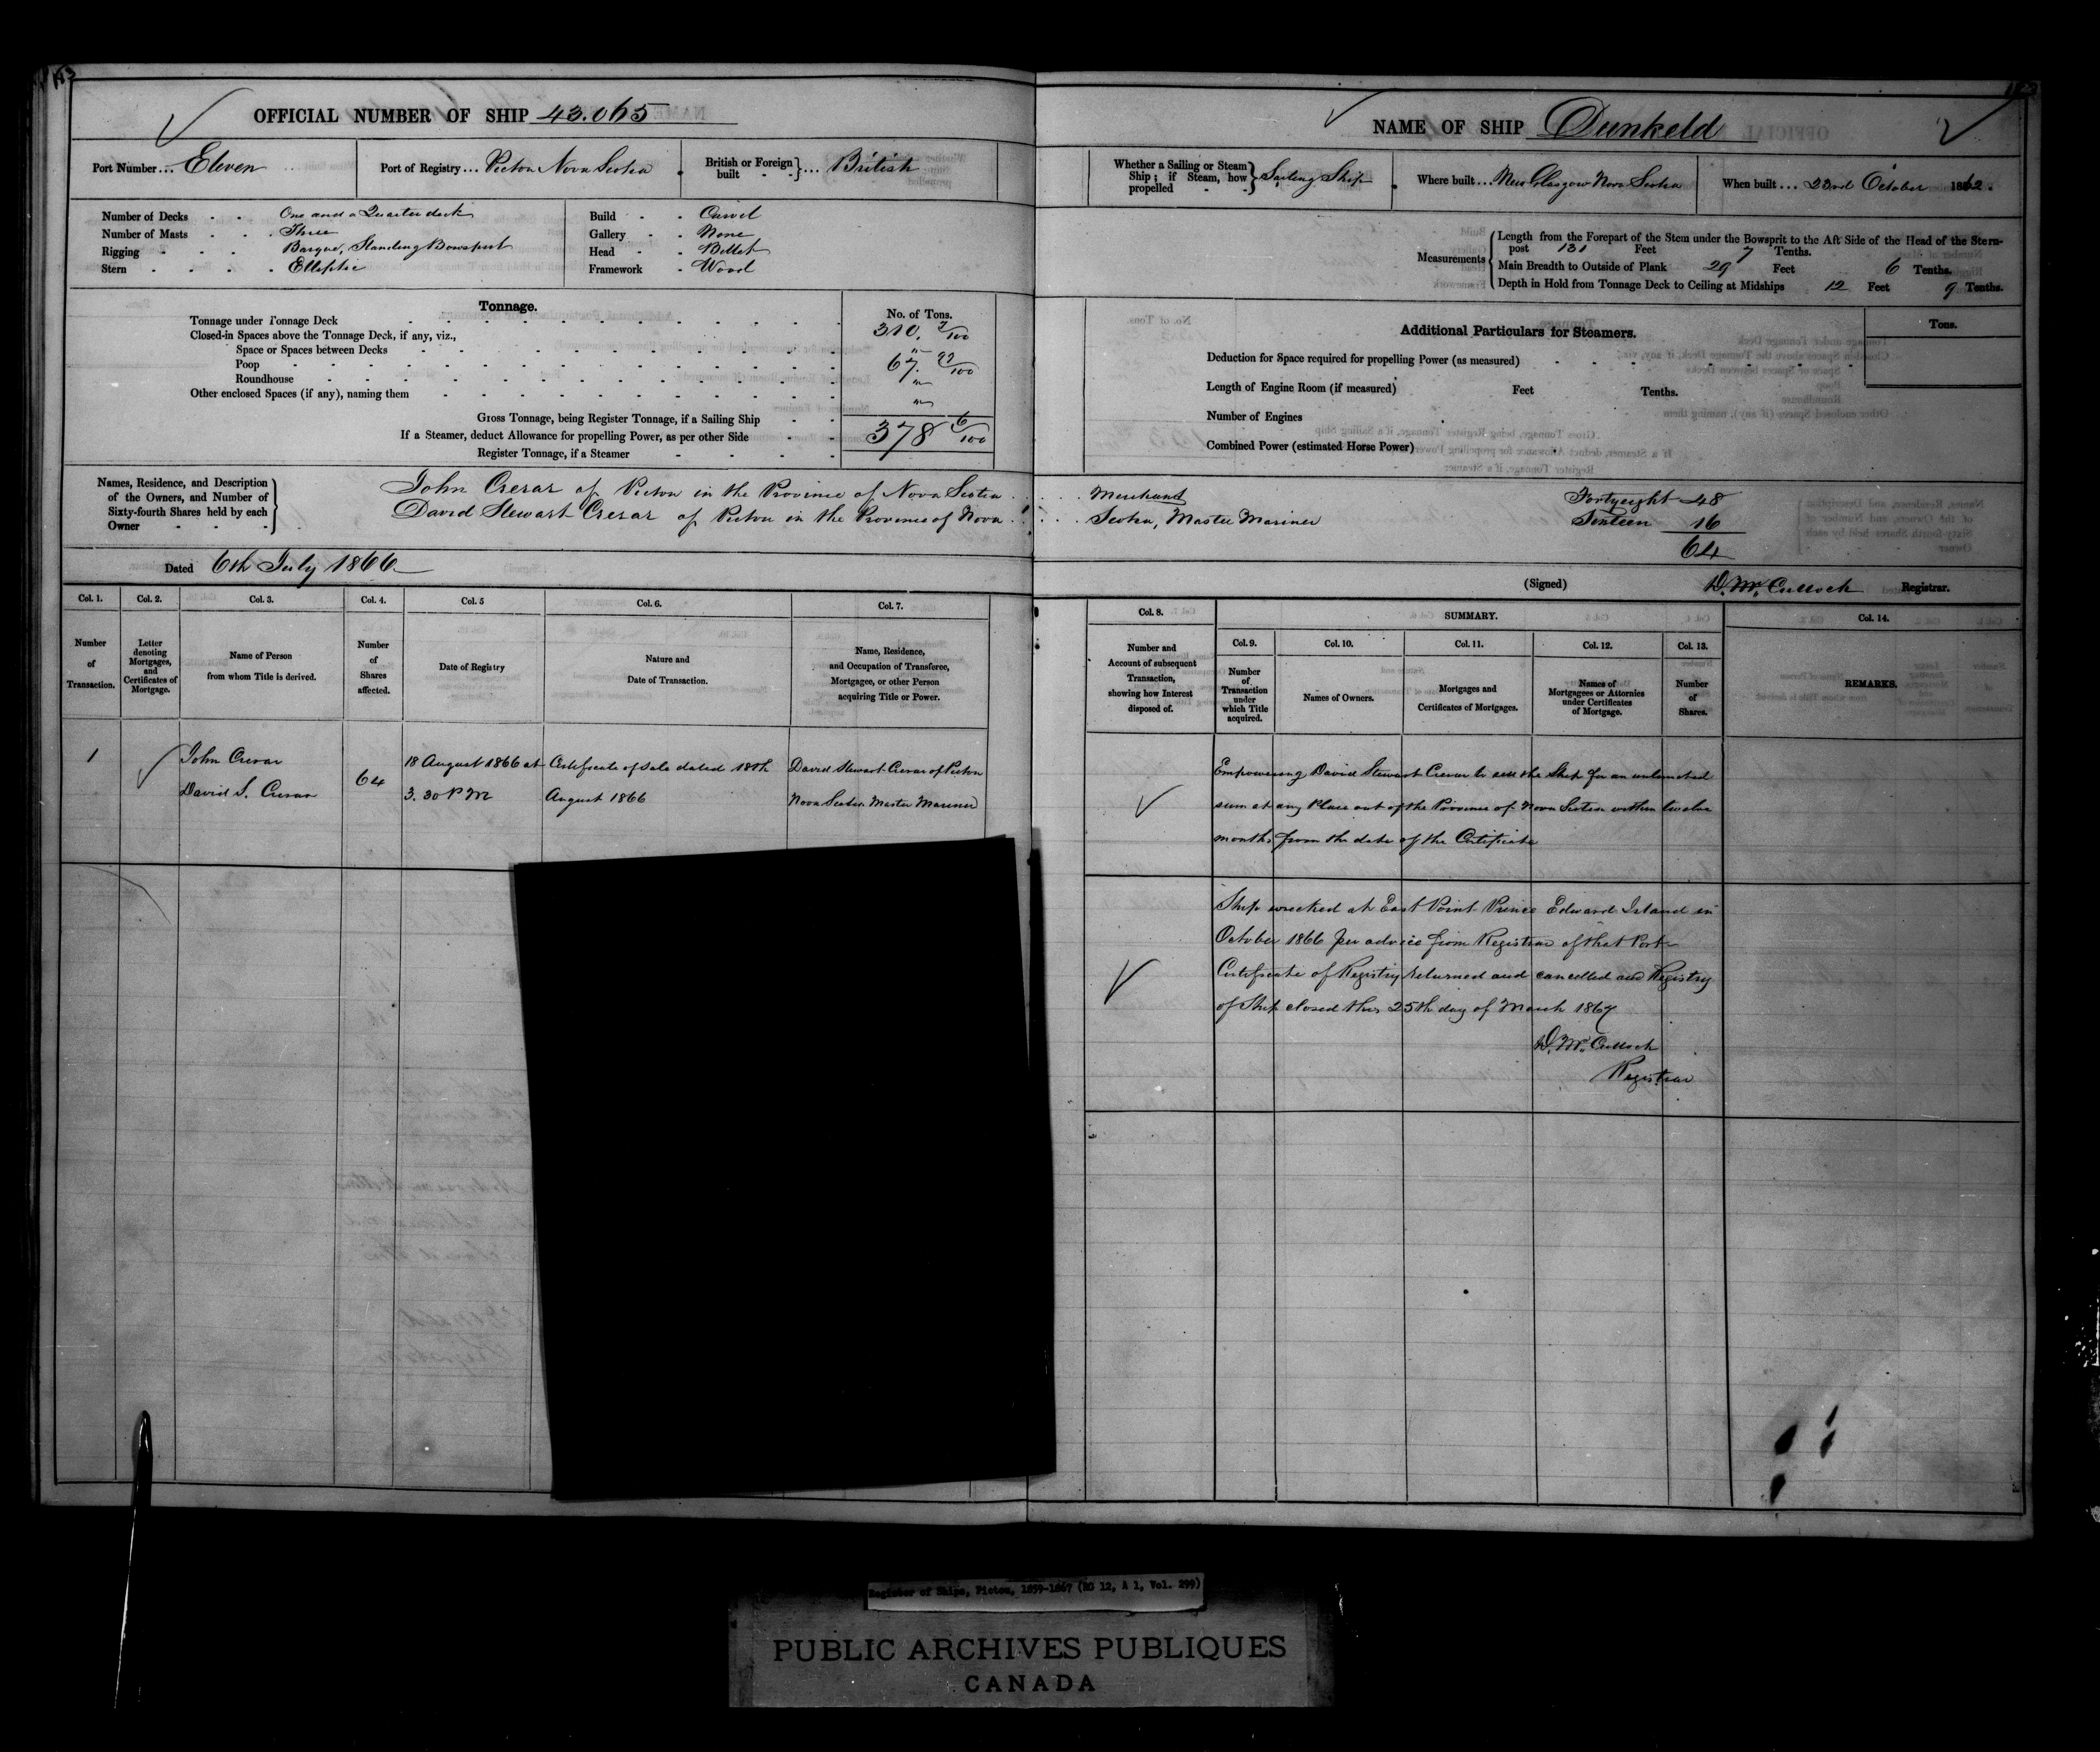 OFFICIAL NUMBER OF SHIP 43.065
Port Number ... Eleven
Port of Registry ... Pictou Nova Scotia
British or Foreign built } ... British
Number of Decks One and a Quarter deck
Number of Masts Three
Rigging Barque, Standing Bowsprit
Stern Elliptic
Build Carvel
Gallery None
Head Billet
Framework Wood
Tonnage.
No. of Tons.
Tonnage under Tonnage Deck 310. 7/100
Closed-in Spaces above the Tonnage Deck, if any, viz.,
Space or Spaces between Decks "
Poop 67. 99/100
Roundhouse "
Other enclosed Spaces (if any), naming them "
Gross Tonnage, being Register Tonnage, if a Sailing Ship 378 6/100
If a Steamer, deduct Allowance for propelling Power, as per other Side
Register Tonnage, if a Steamer
Names, Residence, and Description of the Owners, and Number of Sixty-fourth Shares held by each Owner
John Crerar of Pictou in the Province of Nova Scotia
David Stewart Crerar of Pictou in the Province of Nova
Dated 6th July 1866
Col. 1. Col. 2. Col. 3. Col. 4. Col. 5 Col. 6. Col. 7.
Number of Transaction.
Letter denoting Mortgages, and Certificates of Mortgage.
Name of Person from whom Title is derived.
Number of Shares affected.
Date of Registry
Nature and Date of Transaction.
Name, Residence, and Occupation of Transferee, Mortgagee, or other Person acquiring Title or Power.
1 John Crerar 64 18 August 1866 at Certificate of Sale dated 18th David Stewart Crerar of Pictou
David S. Crerar 3.30 P M August 1866 Nova Scotia Master Mariner
NAME OF SHIP Dunkeld
Whether a Sailing or Steam Ship; if Steam, how propelled } Sailing Ship
Where built ... New Glasgow Nova Scotia
When built ... 23rd October 1862.
Measurements
Length from the Forepart of the Stem under the Bowsprit to the Aft Side of the Head of the Stern-
post 131 Feet 7 Tenths.
Main Breadth to Outside of Plank 29 Feet 6 Tenths.
Depth in Hold from Tonnage Deck to Ceiling at Midships 12 Feet 9 Tenths.
Additional Particulars for Steamers.
Tons.
Deduction for Space required for propelling Power (as measured)
Length of Engine Room (if measured) Feet Tenths.
Number of Engines
Combined Power (estimated Horse Power)
Merchant Fortyeight 48
Scotia, Master Mariner Sixteen 16
64
(Signed) D. McCulloch Registrar.
Col. 8. SUMMARY. Col. 14.
Col. 9. Col. 10. Col. 11. Col. 12. Col. 13.
Number and Account of subsequent Transaction, showing how Interest disposed of.
Number of Transaction under which Title acquired.
Names of Owners.
Mortgages and Certificates of Mortgages.
Names of Mortgagees or Attornies under Certificates of Mortgage.
Number of Shares.
REMARKS.
Empowering David Stewart Crerar to sell the Ship for an unlimited
sum at any Place out of the Province of Nova Scotia within twelve
months from the date of the Certificate
Ship wrecked at East Point Prince Edward Island in
October 1866 per advice from Registrar of that Port
Certificate of Registry returned and cancelled and Registry
of Ship closed this 25th day of March 1867
D. McCulloch
Registrar
Register of Ships, Pictou, 1859-1867 (RG 12, A 1, Vol. 299)
PUBLIC ARCHIVES PUBLIQUES
CANADA